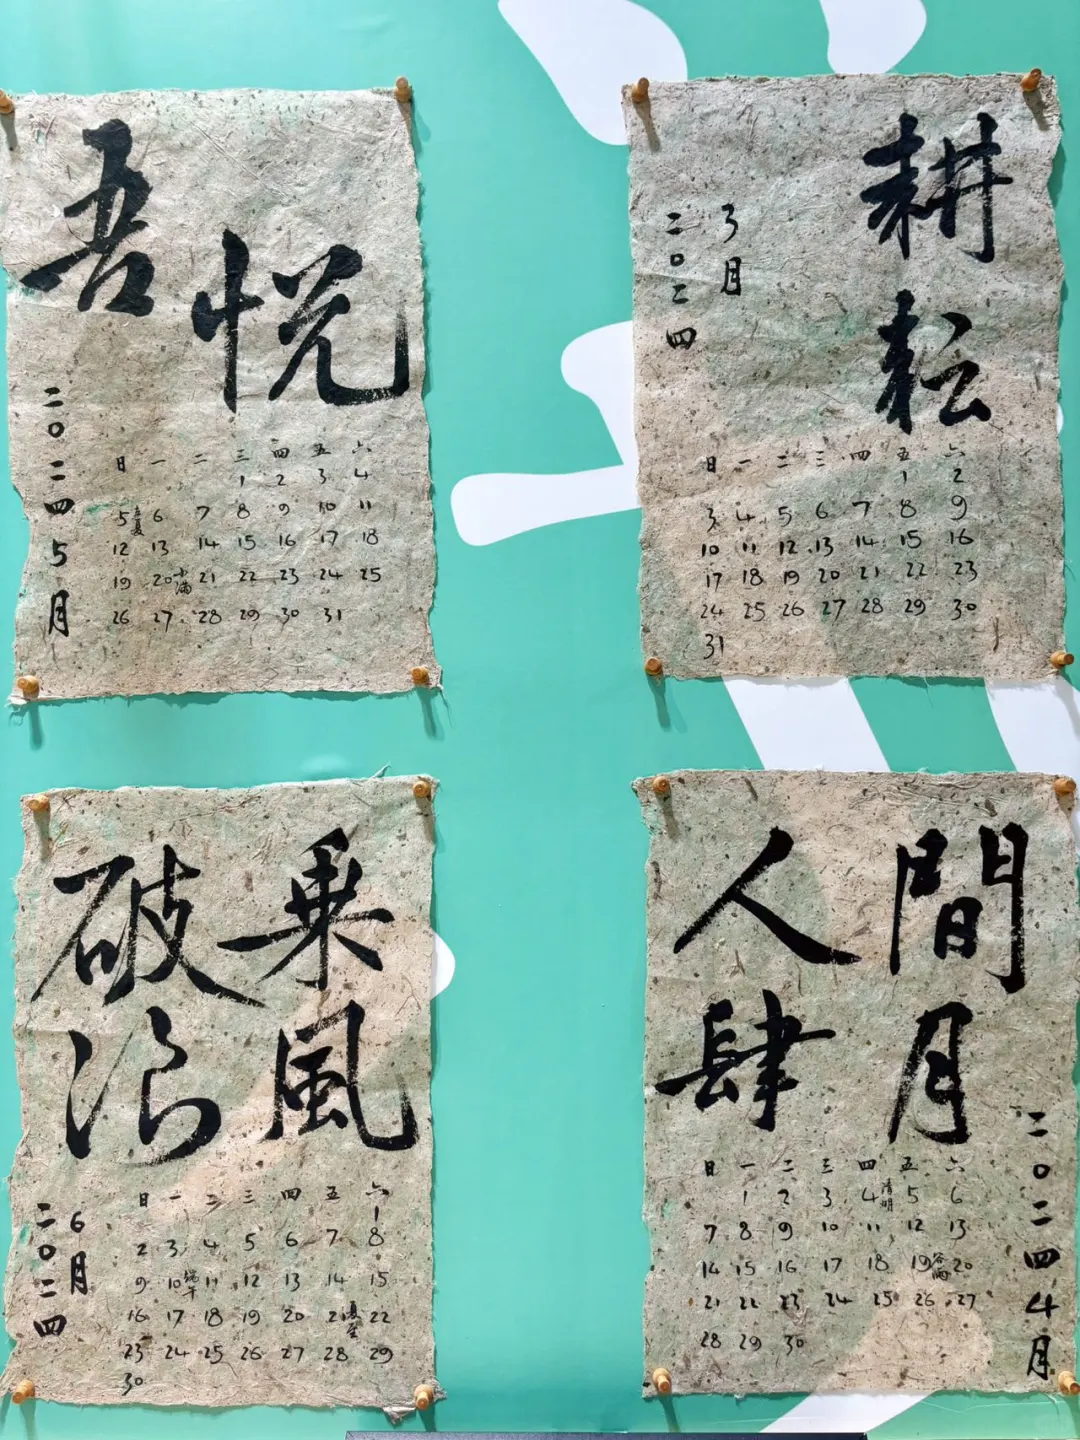 吾悦
二〇二四5月
日 一 二 三 四 五 六
1 2 3 4
5 立夏 6 7 8 9 10 11
12 13 14 15 16 17 18
19 20 小满 21 22 23 24 25
26 27 28 29 30 31
耕耘
3月
二〇二四
日 一 二 三 四 五 六
1 2
3 4 5 6 7 8 9
10 11 12 13 14 15 16
17 18 19 20 21 22 23
24 25 26 27 28 29 30
31
乘風
破浪
6月
二〇二四
日 一 二 三 四 五 六
1
2 3 4 5 6 7 8
9 10 端午 11 12 13 14 15
16 17 18 19 20 21 夏至 22
23 24 25 26 27 28 29
30
人間
肆月
二〇二四4月
日 一 二 三 四 五 六
1 2 3 4 清明 5 6
7 8 9 10 11 12 13
14 15 16 17 18 19 谷雨 20
21 22 23 24 25 26 27
28 29 30